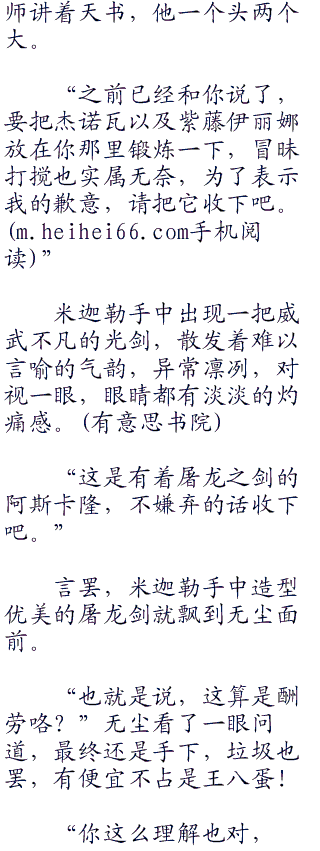 师讲着天书，他一个头两个
大。
“之前已经和你说了，
要把杰诺瓦以及紫藤伊丽娜
放在你那里锻炼一下，冒昧
打搅也实属无奈，为了表示
我的歉意，请把它收下吧。
(m.heihei66.com手机阅
读)”
米迦勒手中出现一把威
武不凡的光剑，散发着难以
言喻的气韵，异常凛冽，对
视一眼，眼睛都有淡淡的灼
痛感。(有意思书院)
“这是有着屠龙之剑的
阿斯卡隆，不嫌弃的话收下
吧。”
言罢，米迦勒手中造型
优美的屠龙剑就飘到无尘面
前。
“也就是说，这算是酬
劳咯？”无尘看了一眼问
道，最终还是手下，垃圾也
罢，有便宜不占是王八蛋！
“你这么理解也对，